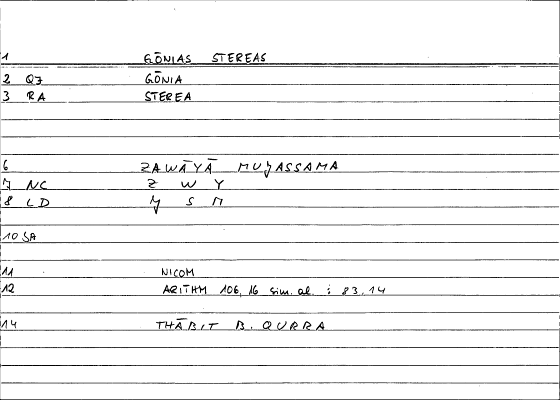 1 GŌNIAS STEREAS
2 QZ GŌNIA
3 RA STEREA
6 ZAWĀYĀ MUǧASSAMA
7 NC Z W Y
8 LD ǧ S M
10 SA
11 NICOM
12 ARITHM 106, 16 sim. al. : 83.14
14 THĀBIT B. QURRA